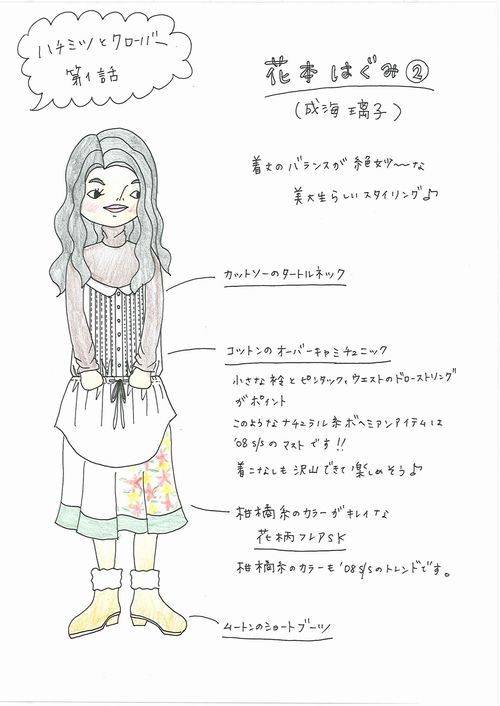 ハチミツとクローバー
第1話
花本はぐみ②
(成海璃子)
着丈のバランスが絶妙〜な
美大生らしいスタイリング♪
カットソーのタートルネック
コットンのオーバーキャミチュニック
小さな衿とピンタック、ウエストのドローストリング
がポイント
このようなナチュラル系ボヘミアンアイテムは
'08 S/Sのマストです!!
着こなしも沢山できて楽しめそう♪
柑橘系のカラーがキレイな
花柄フレアSK
柑橘系のカラーも'08 S/Sのトレンドです。
ムートンのショートブーツ